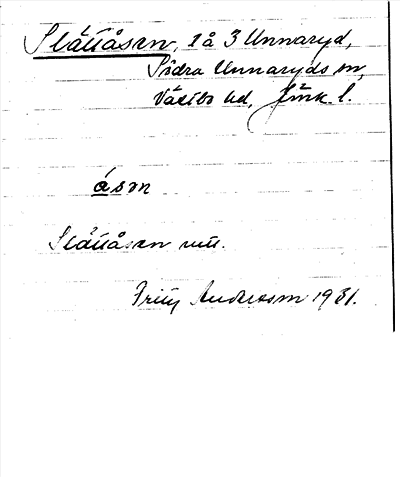 Slättåsen, 1 å 3 Unnaryd,
Södra Unnaryds sn,
Västbo hd, Jönk. l.
åsən
Slättåsen utt.
Fritz Andersson 1931.